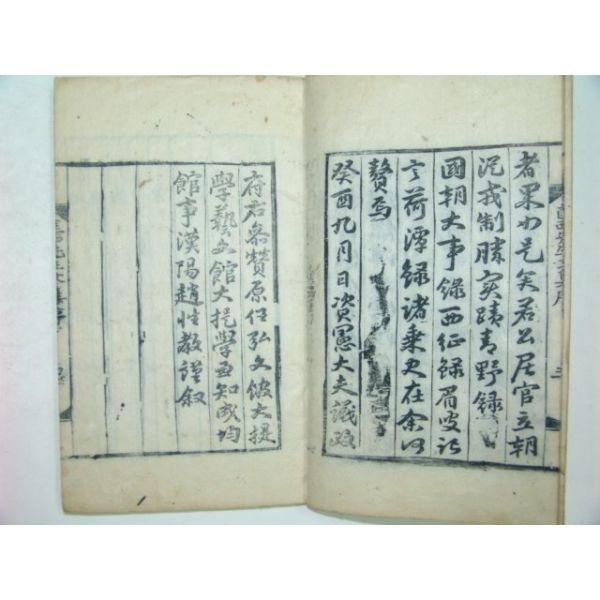 者果如是矣若公居官立朝
况我制勝實蹟青野錄
國朝大事錄西征錄眉叟記
言荷潭錄諸乘史在余何
贅焉
癸酉九月日資憲大夫議政
府右叅贊原任弘文館大提
學藝文館大提學兼知成均
館事漢陽趙性教謹叙